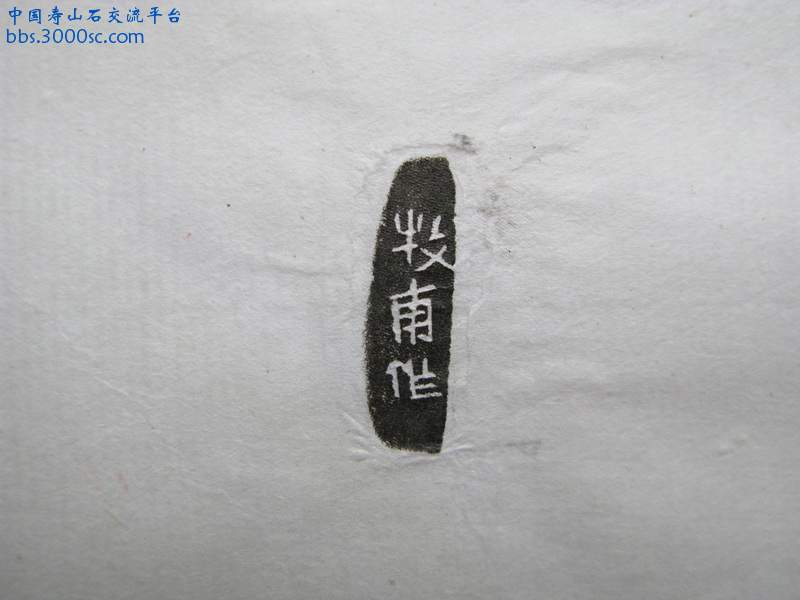 中国寿山石交流平台
bbs.3000sc.com
牧甫作